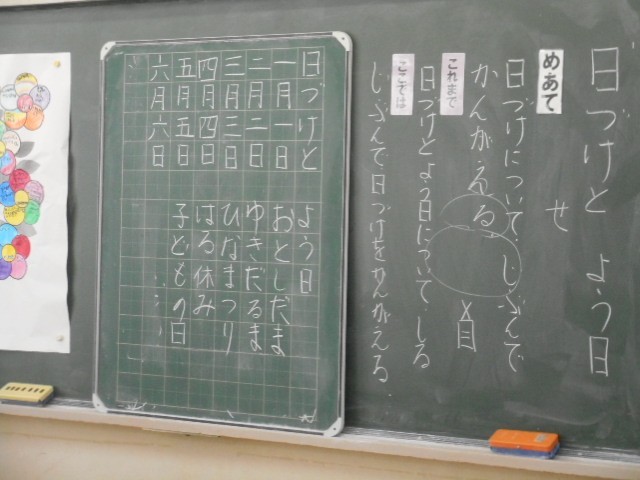 日づけと よう日
せ
めあて
日づけについて、じぶんで
かんがえる
自
これまで
日づけとよう日について しる
ここでは
じぶんで日づけをかんがえる。
日づけと よう日
一月一日 おとしだま
二月二日 ゆきだるま
三月三日 ひなまつり
四月四日 はる休み
五月五日 子どもの日
六月六日